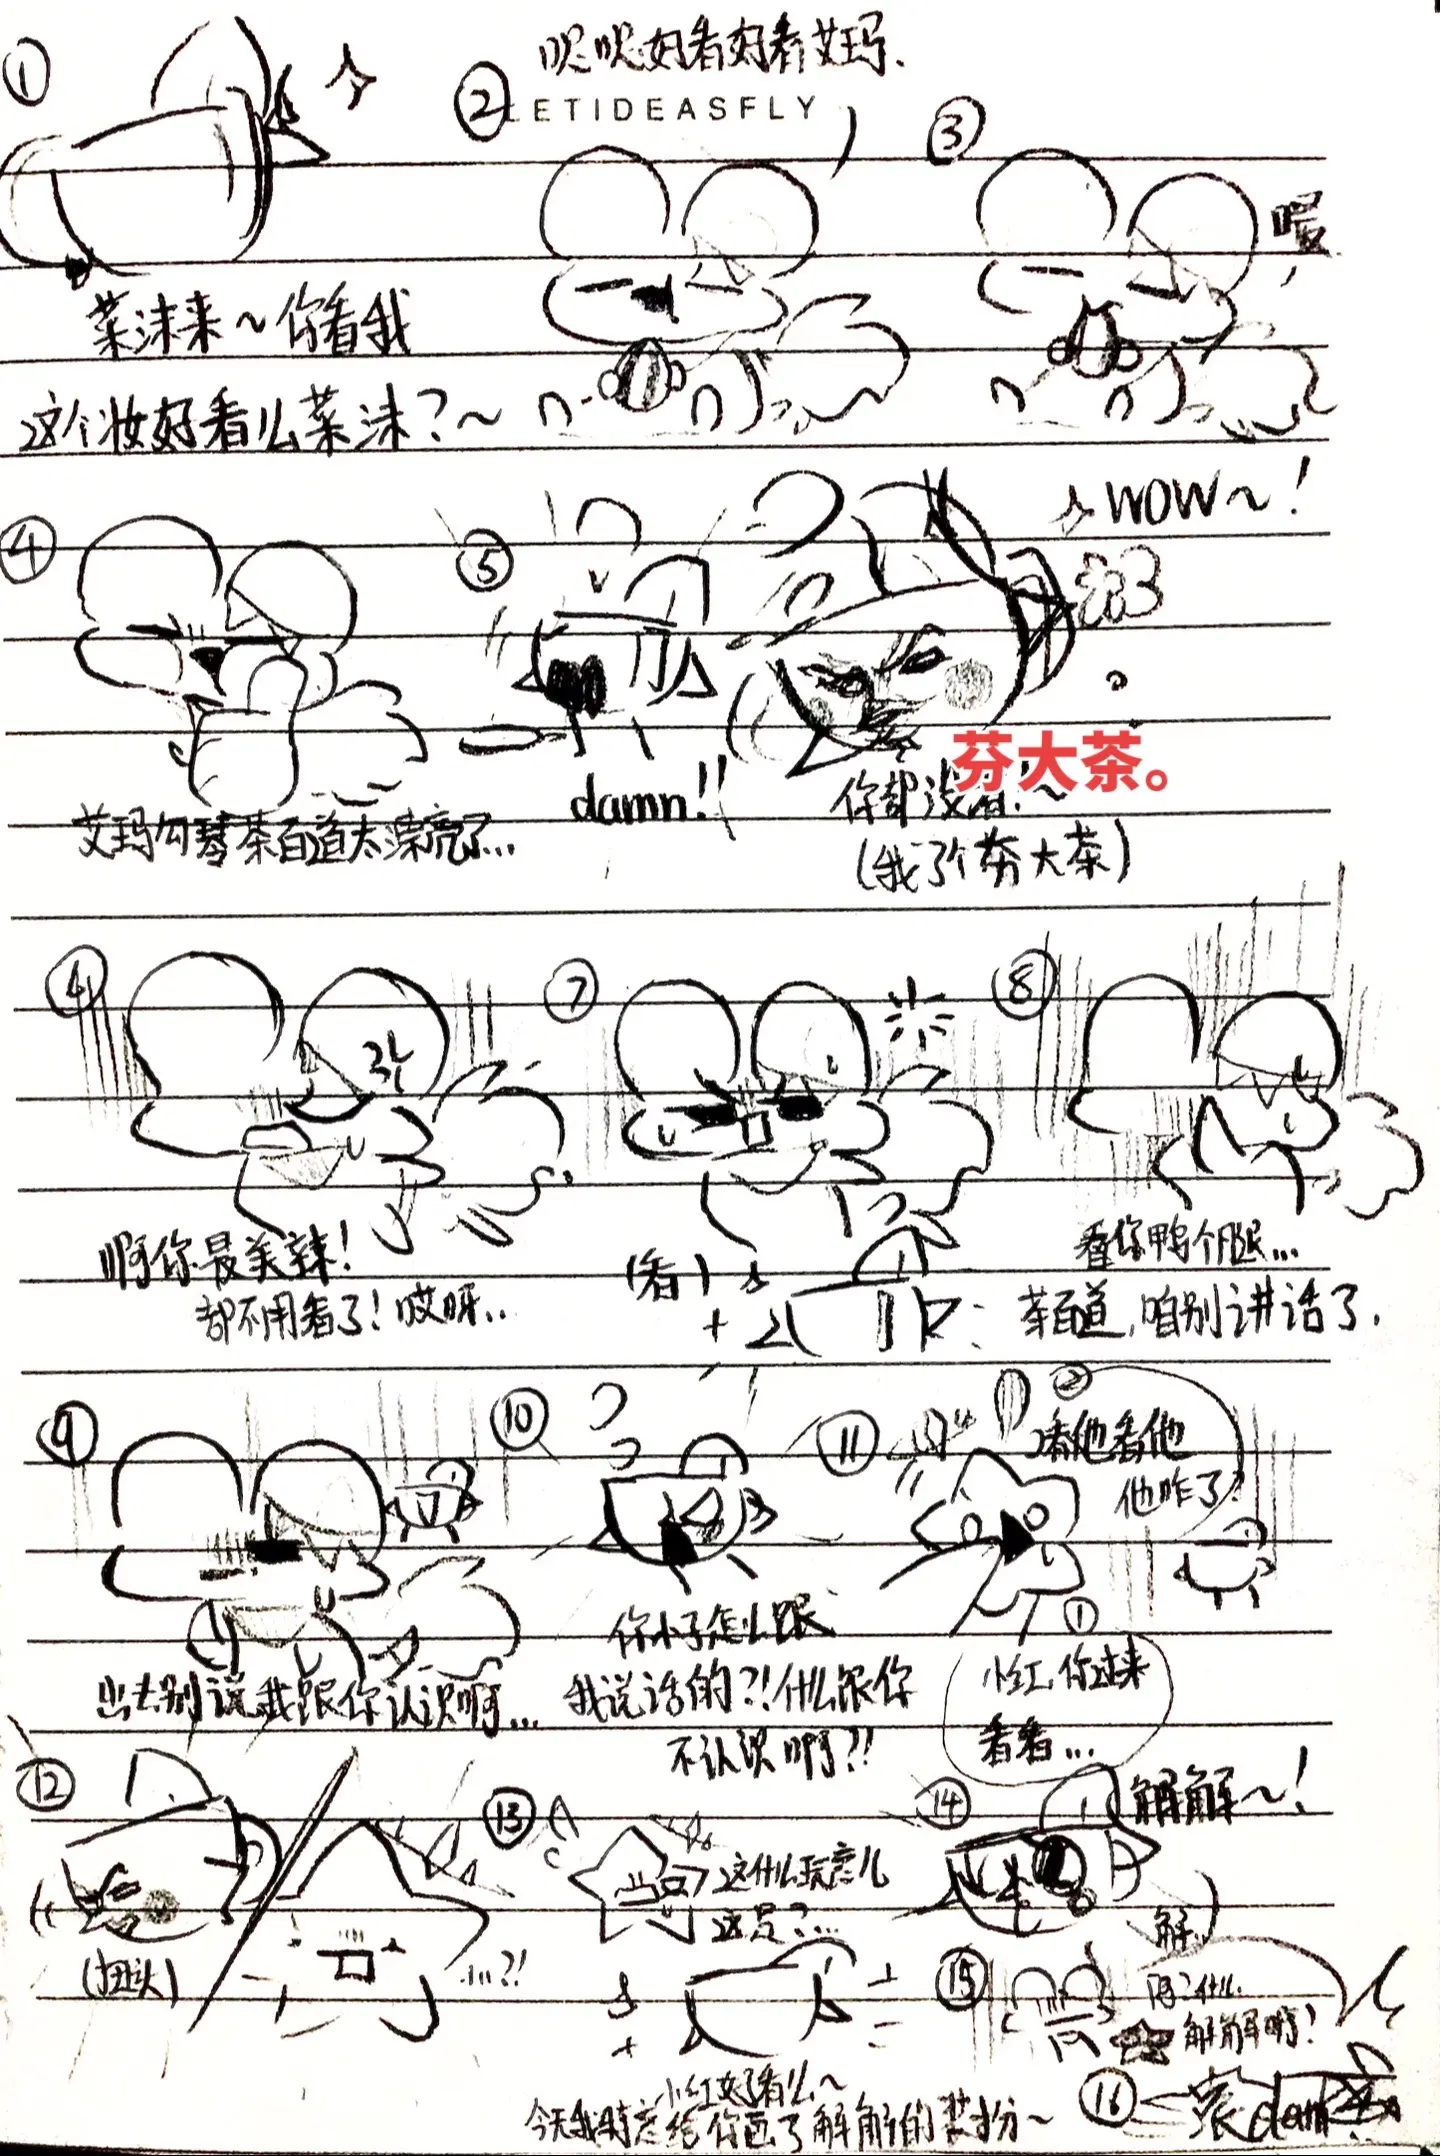 呢呢好看好看艾玛.
①
②
ETIDEASFLY
③
菜沫来~你看我
这个妆好看么菜沫?~
嗳
④
⑤
WOW~!
艾玛勾琴茶百道太漂亮了...
damn!!
芬大茶。
你都没看!~
(我了个芬大茶)
⑦
⑧
啊你最美辣!
都不用看了!哎呀..
(看)
看你鸭个腿...
茶百道,咱别讲话了.
⑨
出去别说我跟你认识啊...
⑩
你小子怎么跟
我说话的?!什么跟你
不认识啊?!
⑪
②
看他看他
他咋了?
①
小红,你过来
看看...
⑫
(扭头)
...?!
⑬
这什么玩意儿
这是?...
小红好看么~
今天我特意给你画了解解的装扮~
⑭
解解~!
解
⑮
啊?什么
解解啊?
⑯